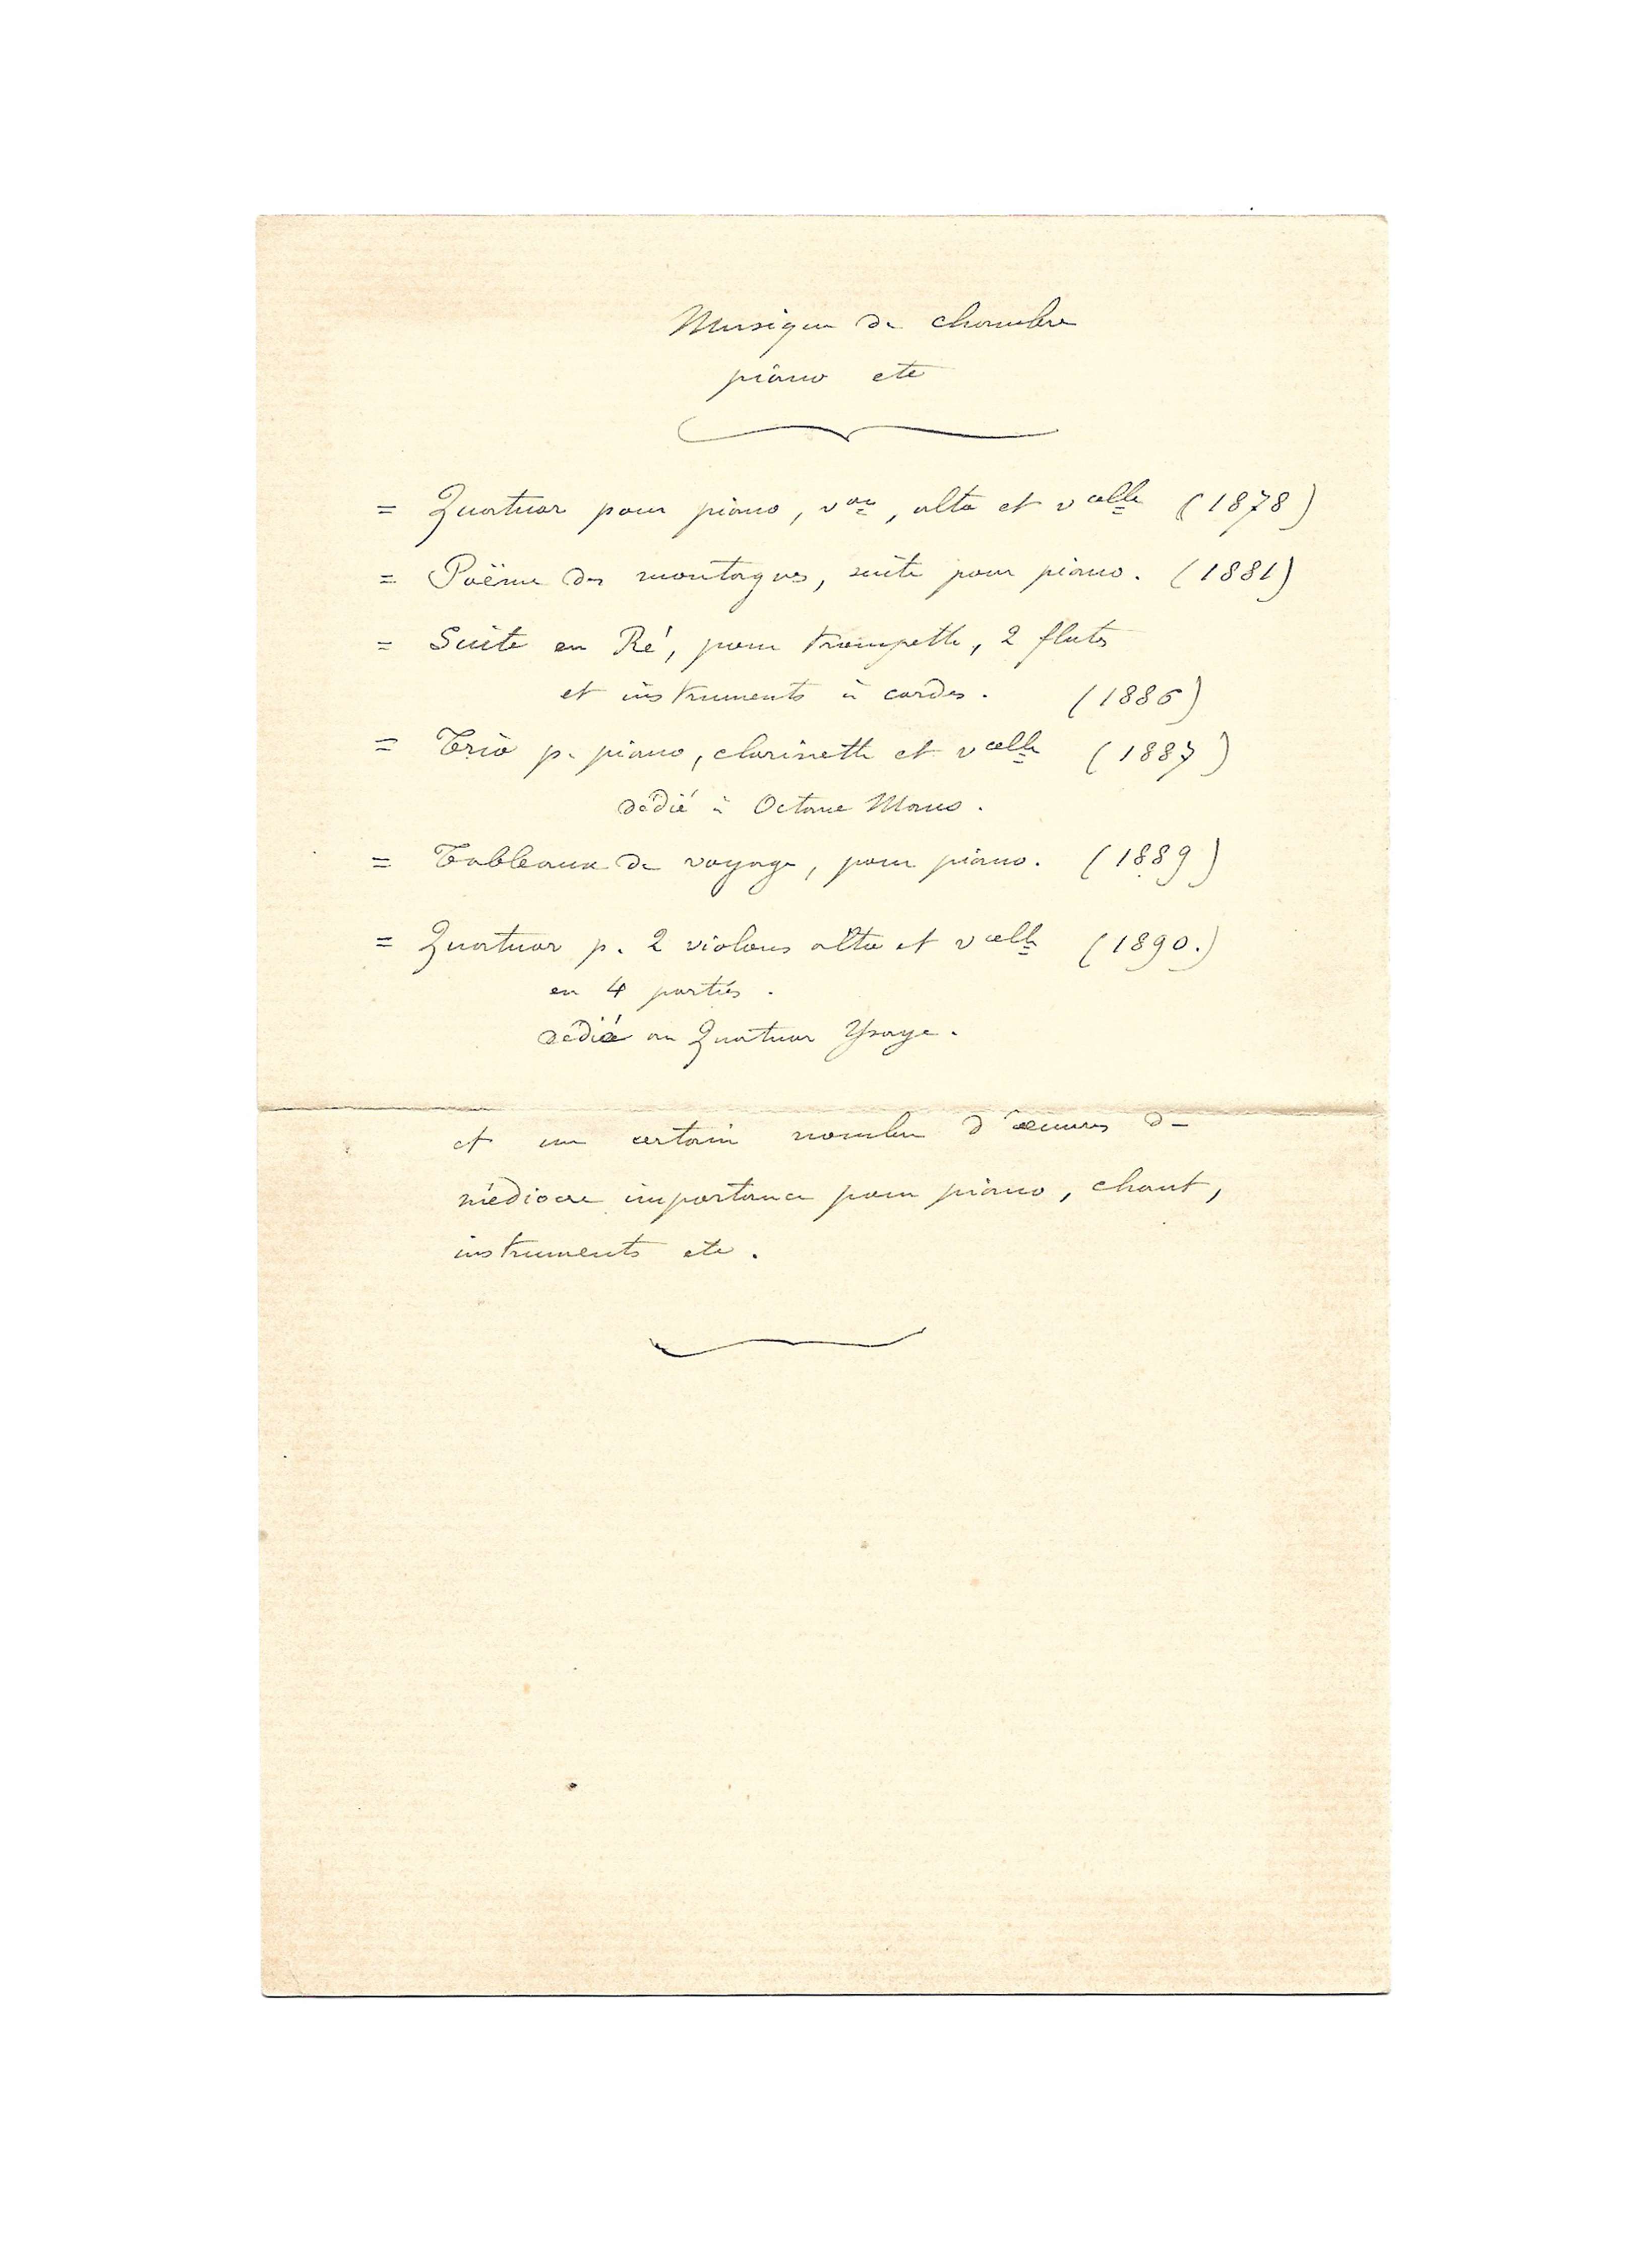 Musique de chambre
piano etc
= Quatuor pour piano, von, alto et vcelle (1878)
= Poëme des montagnes, suite pour piano. (1881)
= Suite en Ré, pour trompette, 2 flutes
et instruments à cordes. (1886)
= Trio p. piano, clarinette et vcelle (1887)
dédié à Octave Maus.
= Tableaux de voyage, pour piano. (1889)
= Quatuor p. 2 violons alto et vcelle (1890.)
en 4 parties.
dédié au Quatuor Ysaye.
et un certain nombre d'œuvres de
médiocre importance pour piano, chant,
instruments etc.